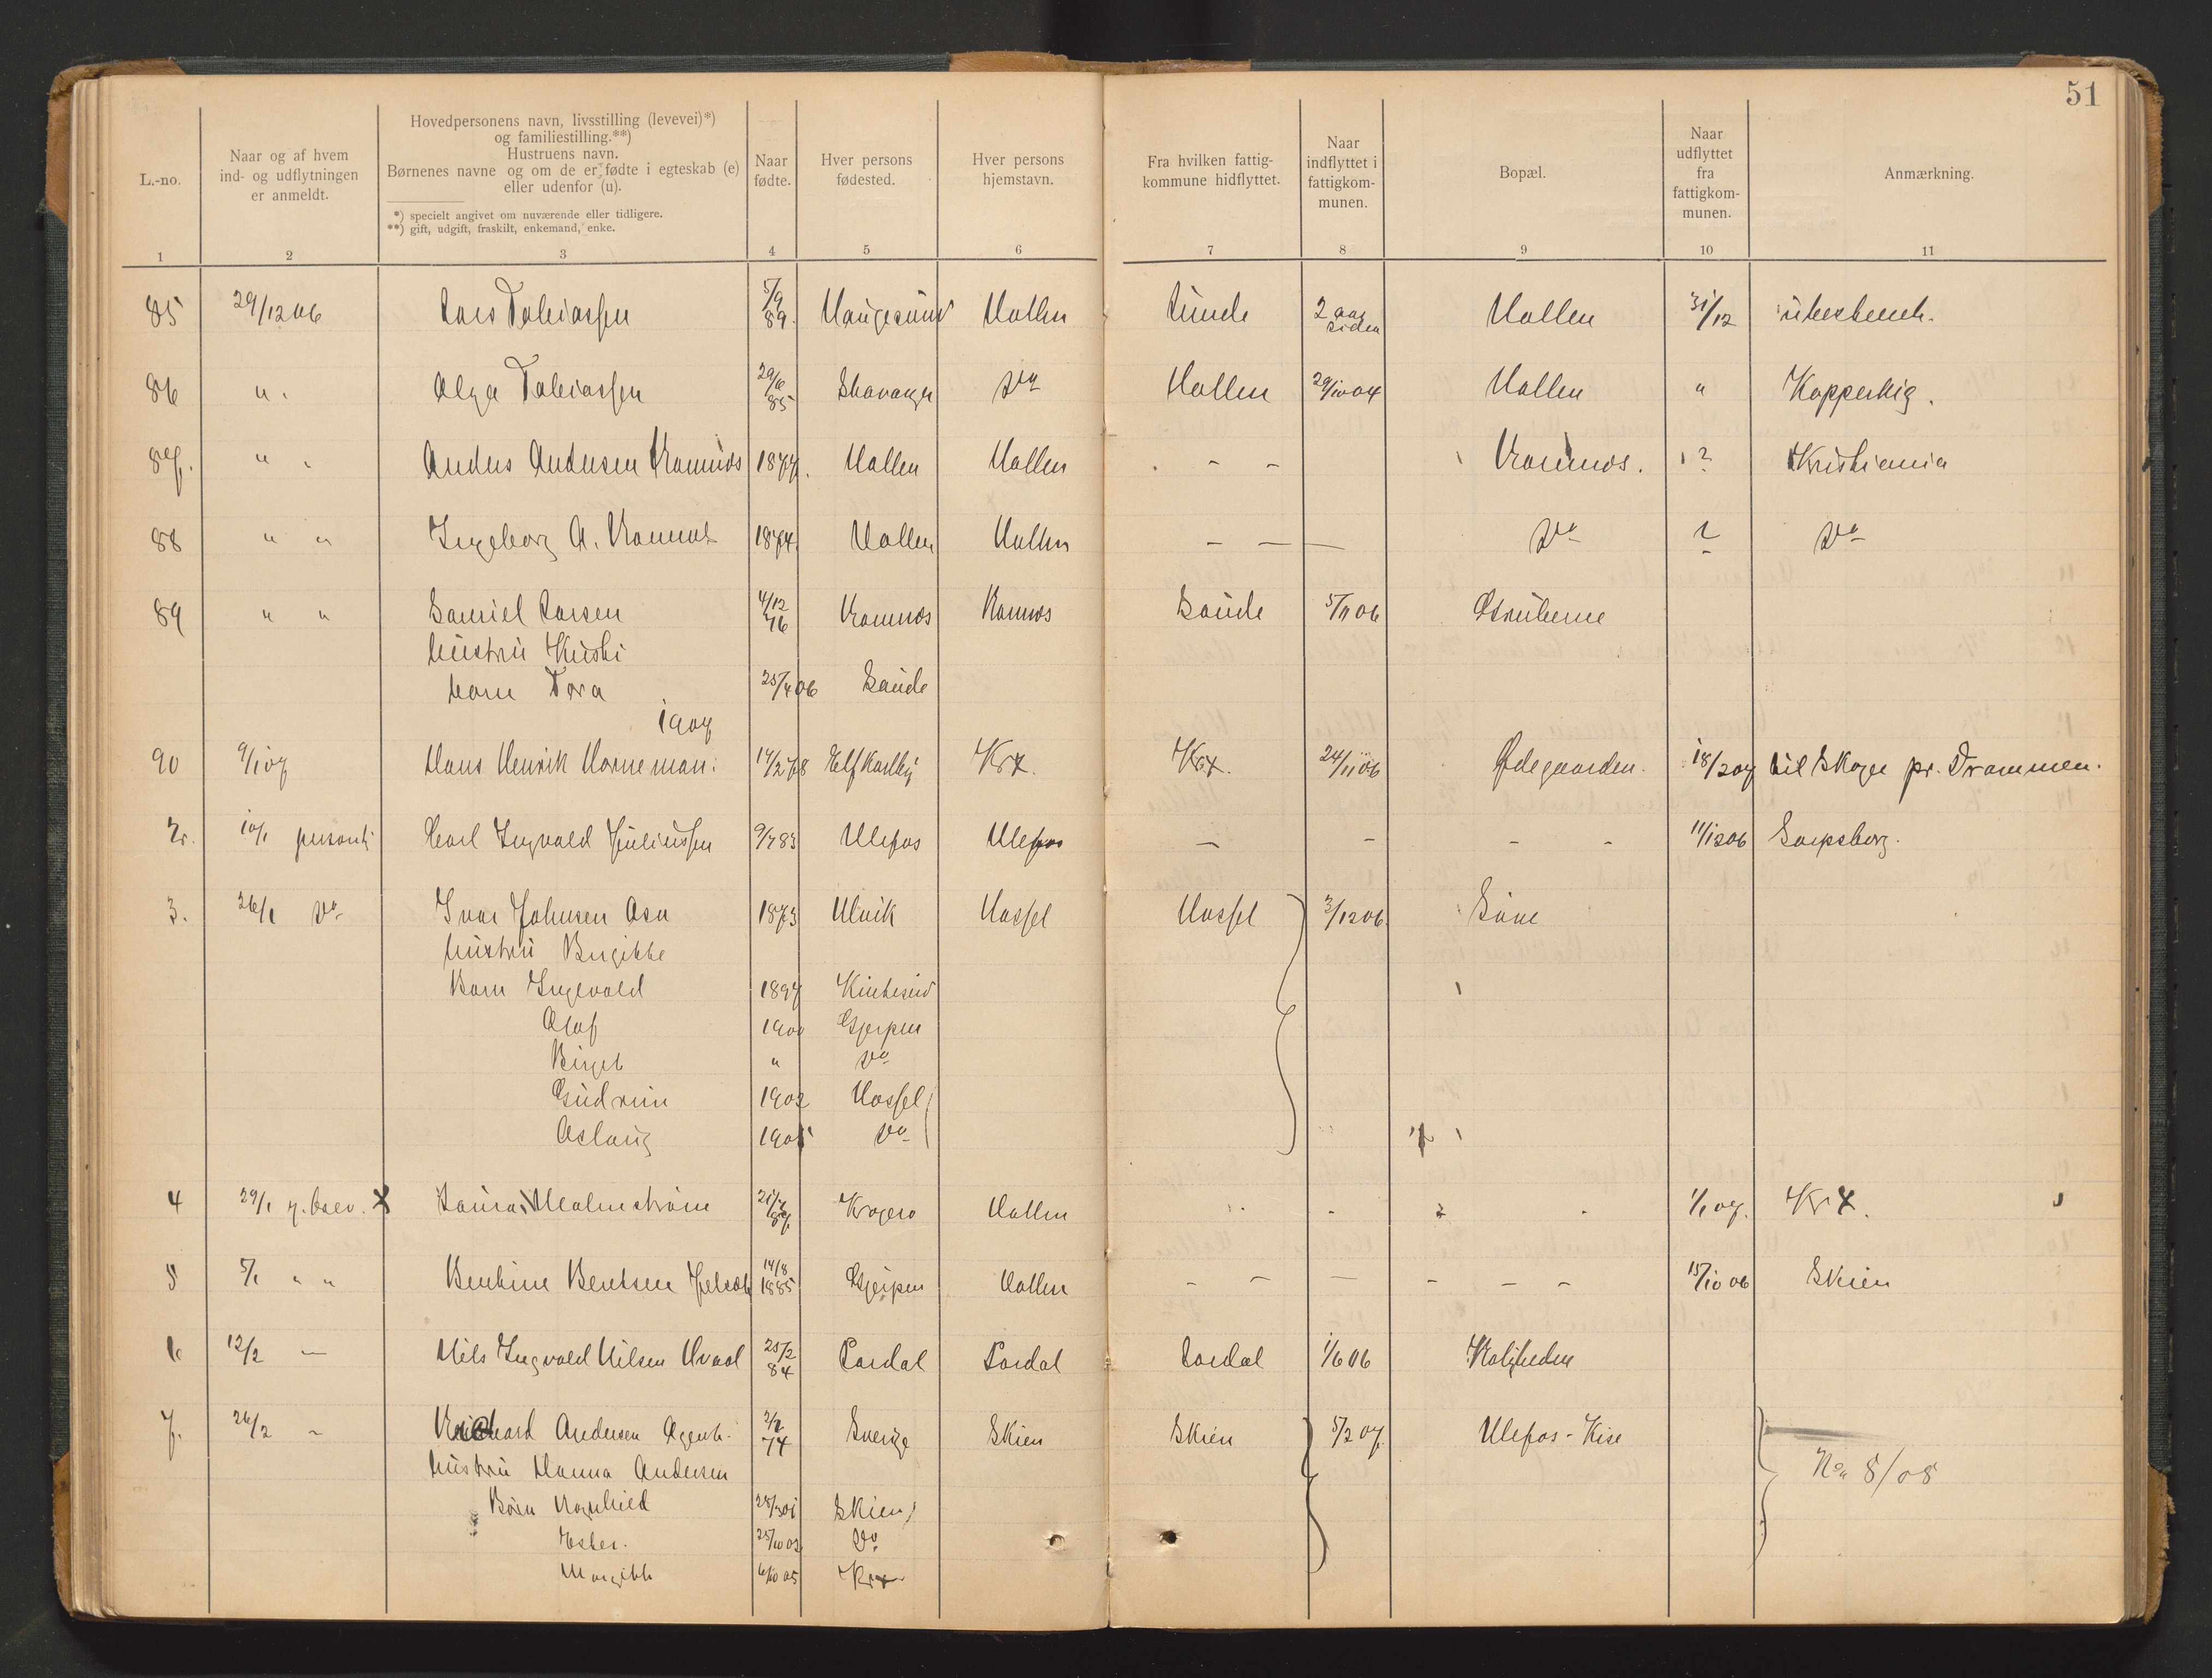 51
L.-no.
Naar og af hvem
ind- og udflytningen
er anmeldt.
Hovedpersonens navn, livsstilling (levevei)*)
og familiestilling.**)
Hustruens navn.
Børnenes navne og om de er fødte i egteskab (e)
eller udenfor (u).
*) specielt angivet om nuværende eller tidligere.
**) gift, ugift, fraskilt, enkemand, enke.
Naar
fødte.
Hver persons
fødested.
Hver persons
hjemstavn.
Fra hvilken fattig-
kommune hidflyttet.
Naar
indflyttet i
fattigkom-
munen.
Bopæl.
Naar
udflyttet
fra
fattigkom-
munen.
Anmærkning.
1 2 3 4 5 6 7 8 9 10 11
85 29/12 06 Lars Tobiassen 5/9 89. Haugesund Hollen 2 aar siden Hollen 31/12
86 " Olga Tobiassen 29/6 85 Stavanger Do Hollen 29/10 04 Hollen " Koppervig.
87. " " Anders Andersen Romnæs 1877. Hollen Hollen - - Romnæs. ? Kristiania
88 " " Ingeborg A. Romnæs 1874. Hollen Hollen - - - Do ? Do
89 " " Samuel Larsen 4/12 76 Romnæs Romnæs Saude 5/11 06
hustru
barn Tora 25/4 06 Saude
1907
90 9/1 07 Hans Henrik Horneman. 14/2 78 Elfkarleby Kr.X. Kr.X. 24/11 06 Ødegaarden. 18/2 07 til Skoger pr. Drammen.
2. 10/1 personl. Carl Ingvald Juliussen 9/7 83 Ulefos Ulefos - - - - 11/12 06 Sarpsborg.
3. 26/1 Do Ivar Johnsen Asn 1873 Ulvik Hassel Hassel 3/12 06.
hustru Birgitte
Barn Ingevald 1897
Olaf 1900 Gjerpen
Birgit " Do
Gudrun 1902 Hassel
Aslaug 1905 Do
4 29/1 p. brev. X Laura Malmstrøm 21/7 87. Kragerø Hollen 1/1 07. Kr X.
5 5/1 " " Bentine Bentsen 14/8 1885 Gjerpen Hollen - - - - - - 15/10 06 Skien
6 12/2 — Nils Ingvald Nilsen Hvaal 25/2 84 Lardal Lardal Lardal 1/6 06
7. 26/2 - Richard Andersen Agent. 2/2 74 Sverige Skien Skien 5/2 07. Ulefos - Kise No 8/08
hustru Hanna Andersen
Børn Ragnhild 25/3 01 Skien
Ester. 25/10 02 Do
Margith 6/10 05 Kr.X